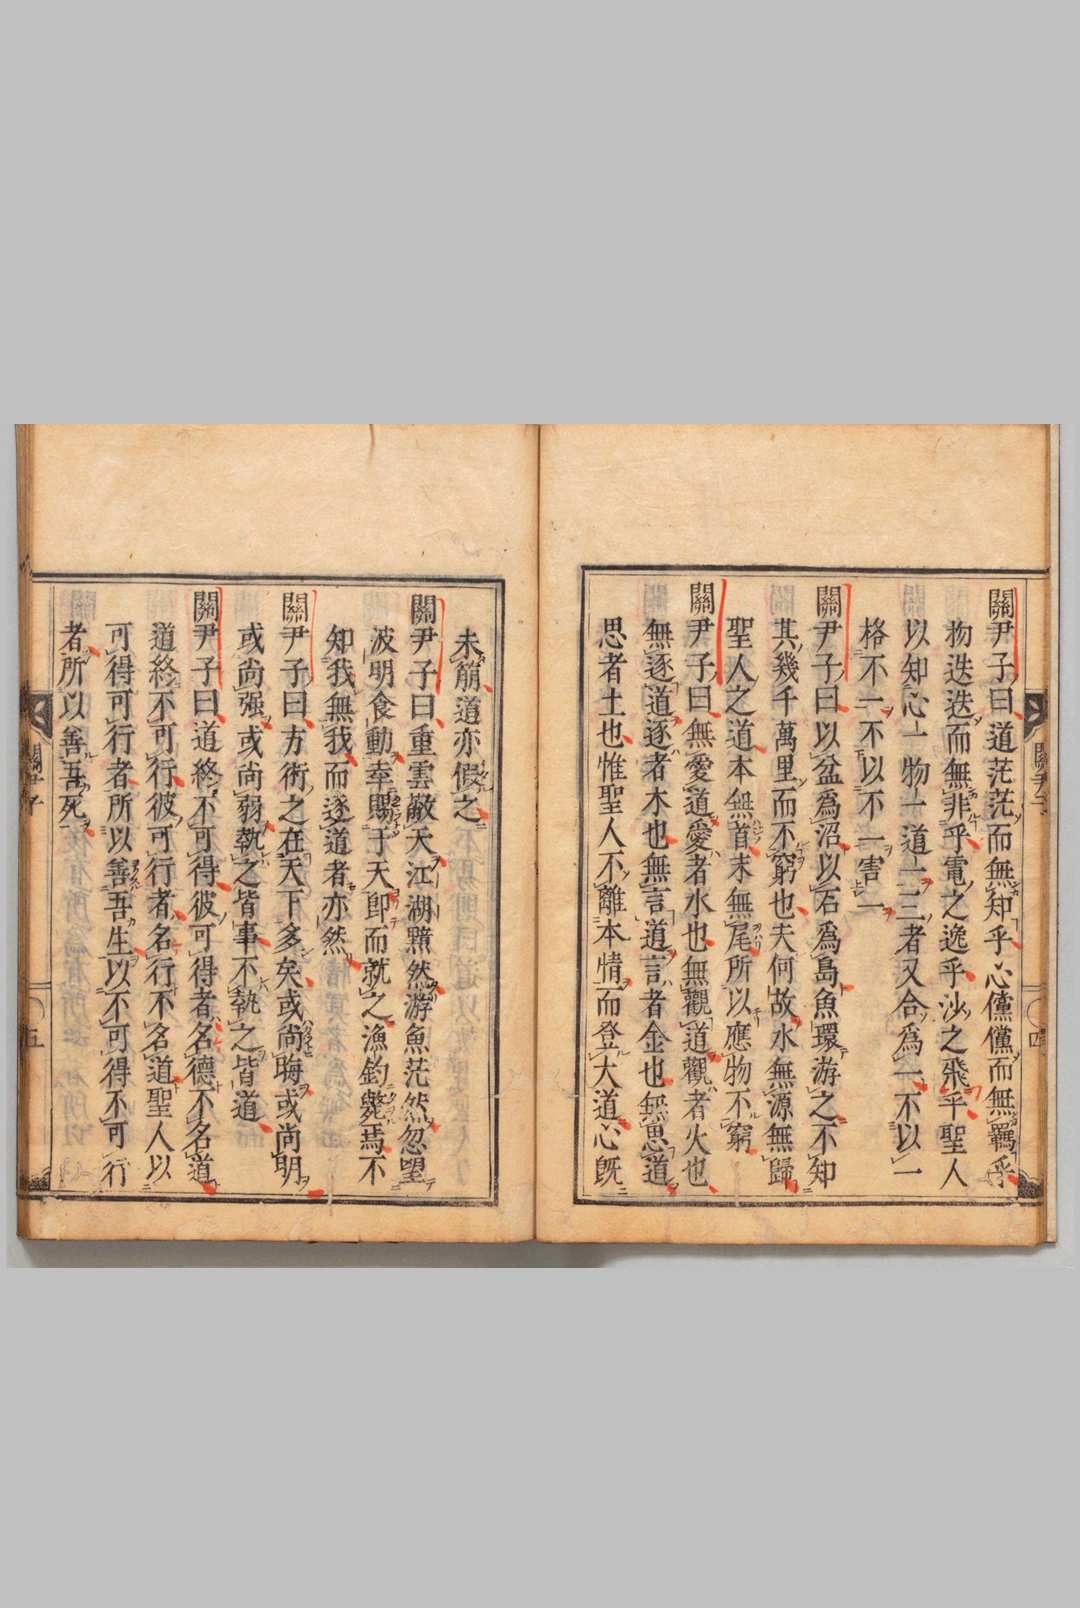 關尹子曰道茫茫而無知乎心儻儻而無羈乎
物迭迭而無非乎電之逸乎沙之飛乎聖人
以知心一物一道一三者又合爲一不以一
格不一不以不一害一
關尹子曰以盆爲沼以石爲島魚環游之不知
其幾千萬里而不窮也夫何故水無源無歸
聖人之道本無首末無尾所以應物不窮
關尹子曰無愛道愛者水也無觀道觀者火也
無逐道逐者木也無言道言者金也無思道
思者土也惟聖人不離本情而登大道心旣
關尹子
四
未萠道亦假之
關尹子曰重雲蔽天江湖黯然游魚茫然忽望
波明食動幸賜于天卽而就之漁釣斃焉不
知我無我而逐道者亦然
關尹子曰方術之在天下多矣或尚晦或尚明
或尚强或尚弱執之皆事不執之皆道
關尹子曰道終不可得彼可得者名德不名道
道終不可行彼可行者名行不名道聖人以
可得可行者所以善吾生以不可得不可行
者所以善吾死
關尹子
五